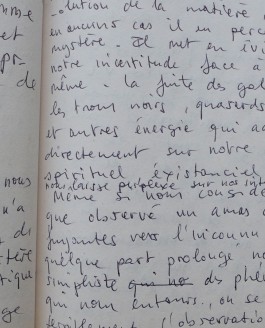 mme
et
pr-
de
nous
n'a
di
stère
tique
ge
olution de la matière
en aucuns cas il en perc
mystère. Il met en évi
notre incertitude face à
même. La fuite des gal
les trous noirs, quasards
et autres énergie qui ag
directement sur notre
spirituel, existanciel
nous laisse perplexe sur nos int
Même si nous consid
que observe un amas d
fuyantes vers l'inconnu
quelque part prolongé no
simpliste qui no des phé
qui nous entoure, on se
l'observatio